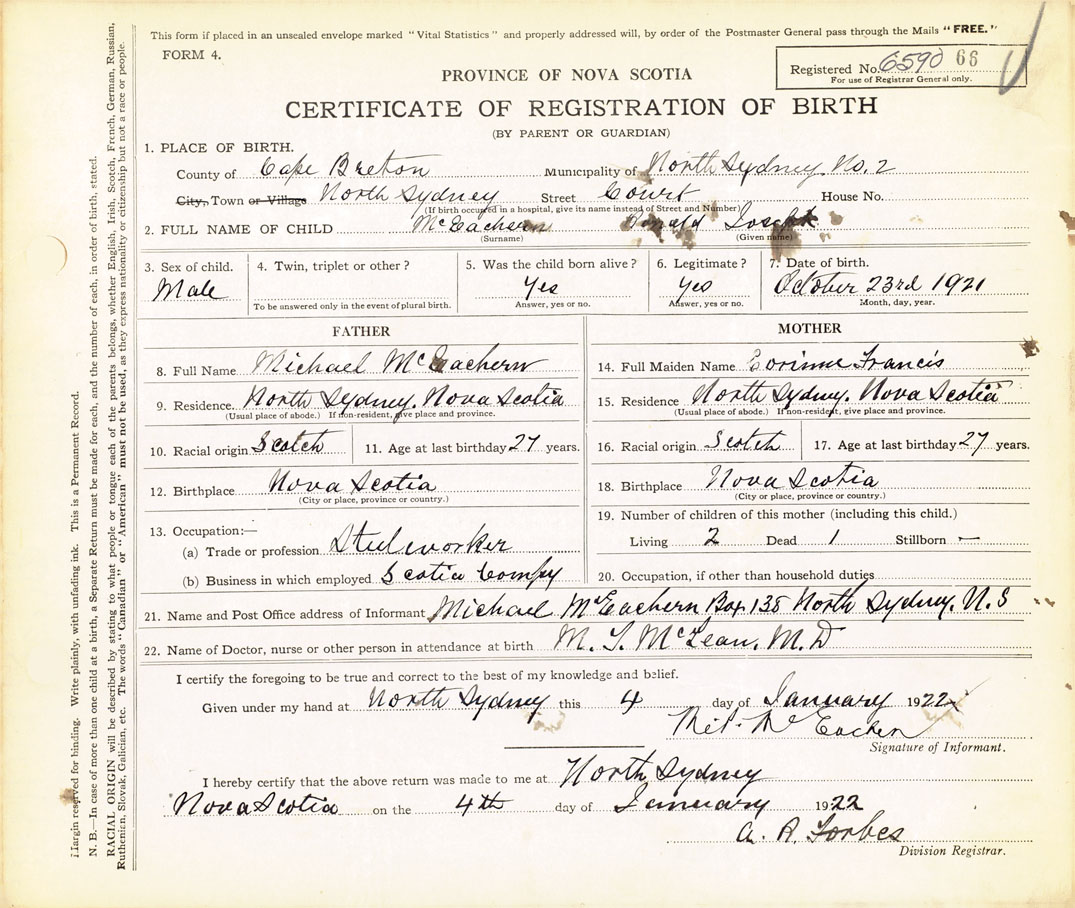 This form if placed in an unsealed envelope marked "Vital Statistics" and properly addressed will, by order of the Postmaster General pass through the Mails "FREE."
FORM 4.
Registered No. 6590 66
For use of Registrar General only.
PROVINCE OF NOVA SCOTIA
CERTIFICATE OF REGISTRATION OF BIRTH
(BY PARENT OR GUARDIAN)
1. PLACE OF BIRTH.
County of Cape Breton Municipality of North Sydney No. 2
City, Town or Village North Sydney Street Court House No.
(If birth occured in a hospital, give its name instead of Street and Number)
2. FULL NAME OF CHILD McEachern Donald Joseph
(Surname) (Given name)
3. Sex of child. 4. Twin, triplet or other? 5. Was the child born alive? 6. Legitimate? 7. Date of birth.
Male Yes Yes October 23rd 1921
To be answered only in the event of plural birth. Answer, yes or no. Answer, yes or no. Month, day, year.
FATHER
8. Full Name Michael McEachern
9. Residence North Sydney. Nova Scotia
(Usual place of abode.) If non-resident, give place and province.
10. Racial origin Scotch 11. Age at last birthday 27 years.
12. Birthplace Nova Scotia
(City or place, province or country.)
13. Occupation:—
(a) Trade or profession Steelworker
(b) Business in which employed Scotia Compy
MOTHER
14. Full Maiden Name Corinne Francis
15. Residence North Sydney. Nova Scotia
(Usual place of abode.) If non-resident, give place and province.
16. Racial origin Scotch 17. Age at last birthday 27 years.
18. Birthplace Nova Scotia
(City or place, province or country.)
19. Number of children of this mother (including this child.)
Living 2 Dead 1 Stillborn —
20. Occupation, if other than household duties
21. Name and Post Office address of Informant Michael McEachern Box 138 North Sydney. N.S
22. Name of Doctor, nurse or other person in attendance at birth M. T. McLean. M.D
I certify the foregoing to be true and correct to the best of my knowledge and belief.
Given under my hand at North Sydney this 4 day of January 1922
McEachern
Signature of Informant.
I hereby certify that the above return was made to me at North Sydney
Nova Scotia on the 4th day of January 1922
A. R. Forbes
Division Registrar.
Margin reserved for binding. Write plainly, with unfading ink. This is a Permanent Record.
N. B.—In case of more than one child at a birth, a Separate Return must be made for each, and the number of each, in order of birth, stated.
RACIAL ORIGIN will be described by stating to what people or tongue each of the parents belongs, whether English, Irish, Scotch, French, German, Russian,
Ruthenian, Slovak, Galician, etc. The words "Canadian" or "American" must not be used, as they express nationality or citizenship but not a race or people.